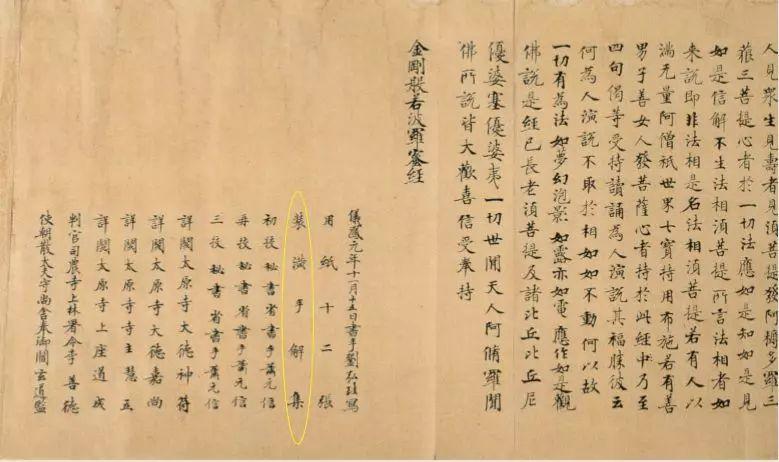 人見眾生見壽者見須菩提發阿耨多羅三
藐三菩提心者於一切法應如是知如是見
如是信解不生法相須菩提所言法相者如
來說即非法相是名法相須菩提若有人以
滿无量阿僧祇世界七寶持用布施若有善
男子善女人發菩薩心者持於此經中乃至
四句偈等受持讀誦為人演說其福勝彼云
何為人演說不取於相如如不動何以故
一切有為法如夢幻泡影如露亦如電應作如是觀
佛說是經已長老須菩提及諸比丘比丘尼
優婆塞優婆夷一切世間天人阿脩羅聞
佛所說皆大歡喜信受奉持
金剛般若波羅蜜經
儀鳳元年十一月十五日書手劉弘珪寫
用紙十二張
裝潢手解集
初校秘書省書手蕭元信
再校秘書省書手蕭元信
三校秘書省書手蕭元信
詳閱太原寺大德神符
詳閱太原寺大德嘉尚
詳閱太原寺寺主慧立
詳閱太原寺上座道成
判官司農寺上林署令李善德
使朝散大夫守尚舍奉御閻玄道監